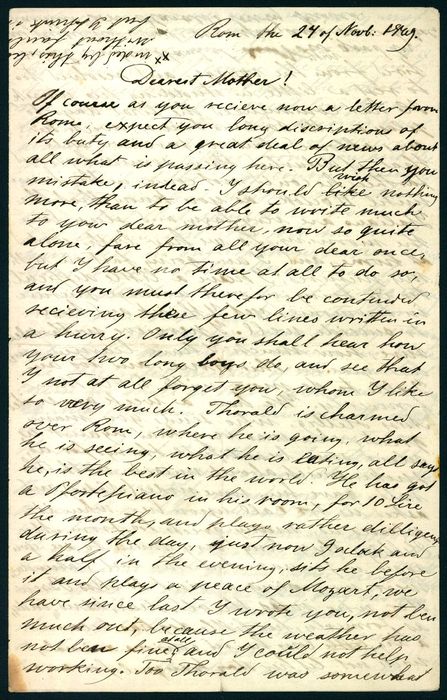 Rom the 24 of Novb: 1869.
xx
Dearest Mother!
Of course as you recieve now a letter from
Rome, expect you long discriptions of
its buty and a great deal of news about
all what is passing here. But then you
mistake, indeed. I should wish like nothing
more, than to be able to write much
to you dear mother, now so quite
alone, fare from all your dear once,
but I have no time at all to do so,
and you must therefor be contended
recieving these few lines written in
a hurry. Only you shall hear how
your two long boys do, and see that
I not at all forget you, whom I like
so very much. Thorald is charmed
over Rom, where he is going, what
he is seeing, what he is eating, all says
he, is the best in the world. He has got
a Pfortepiano in his room, for 10 Lire
the month, and plays rather dilligent
during the day, just now 9 oclock and
a half in the evening, sits he before
it and plays a peace of Mozart, we
have since last I wrote you, not ben
much out, because the weather has
not ben fine at all and I could not help
working. Too Thorald was somewhat